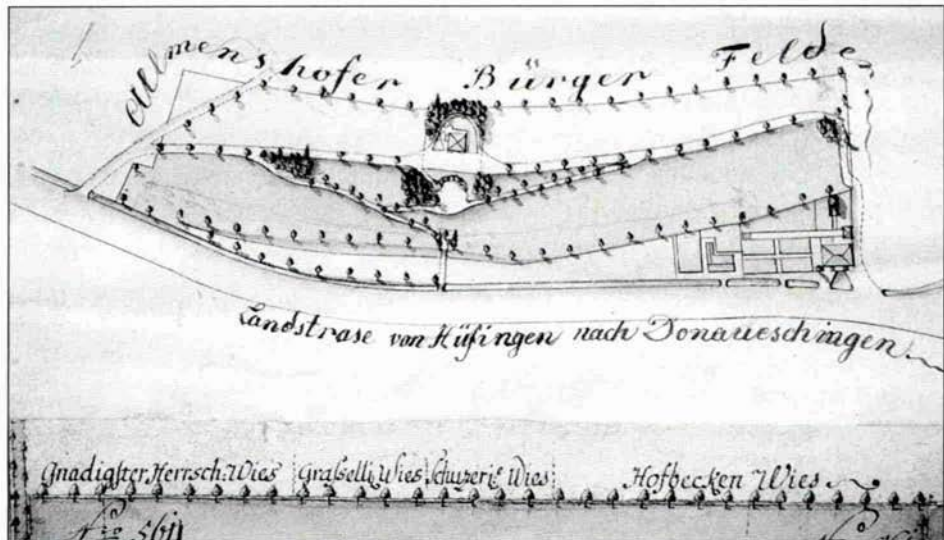 Allmenshofer Bürger Felde
Landstrase von Hüfingen nach Donaueschingen
Gnädigster Herrsch. Wies
Wies
Wies
Hofbecken Wies